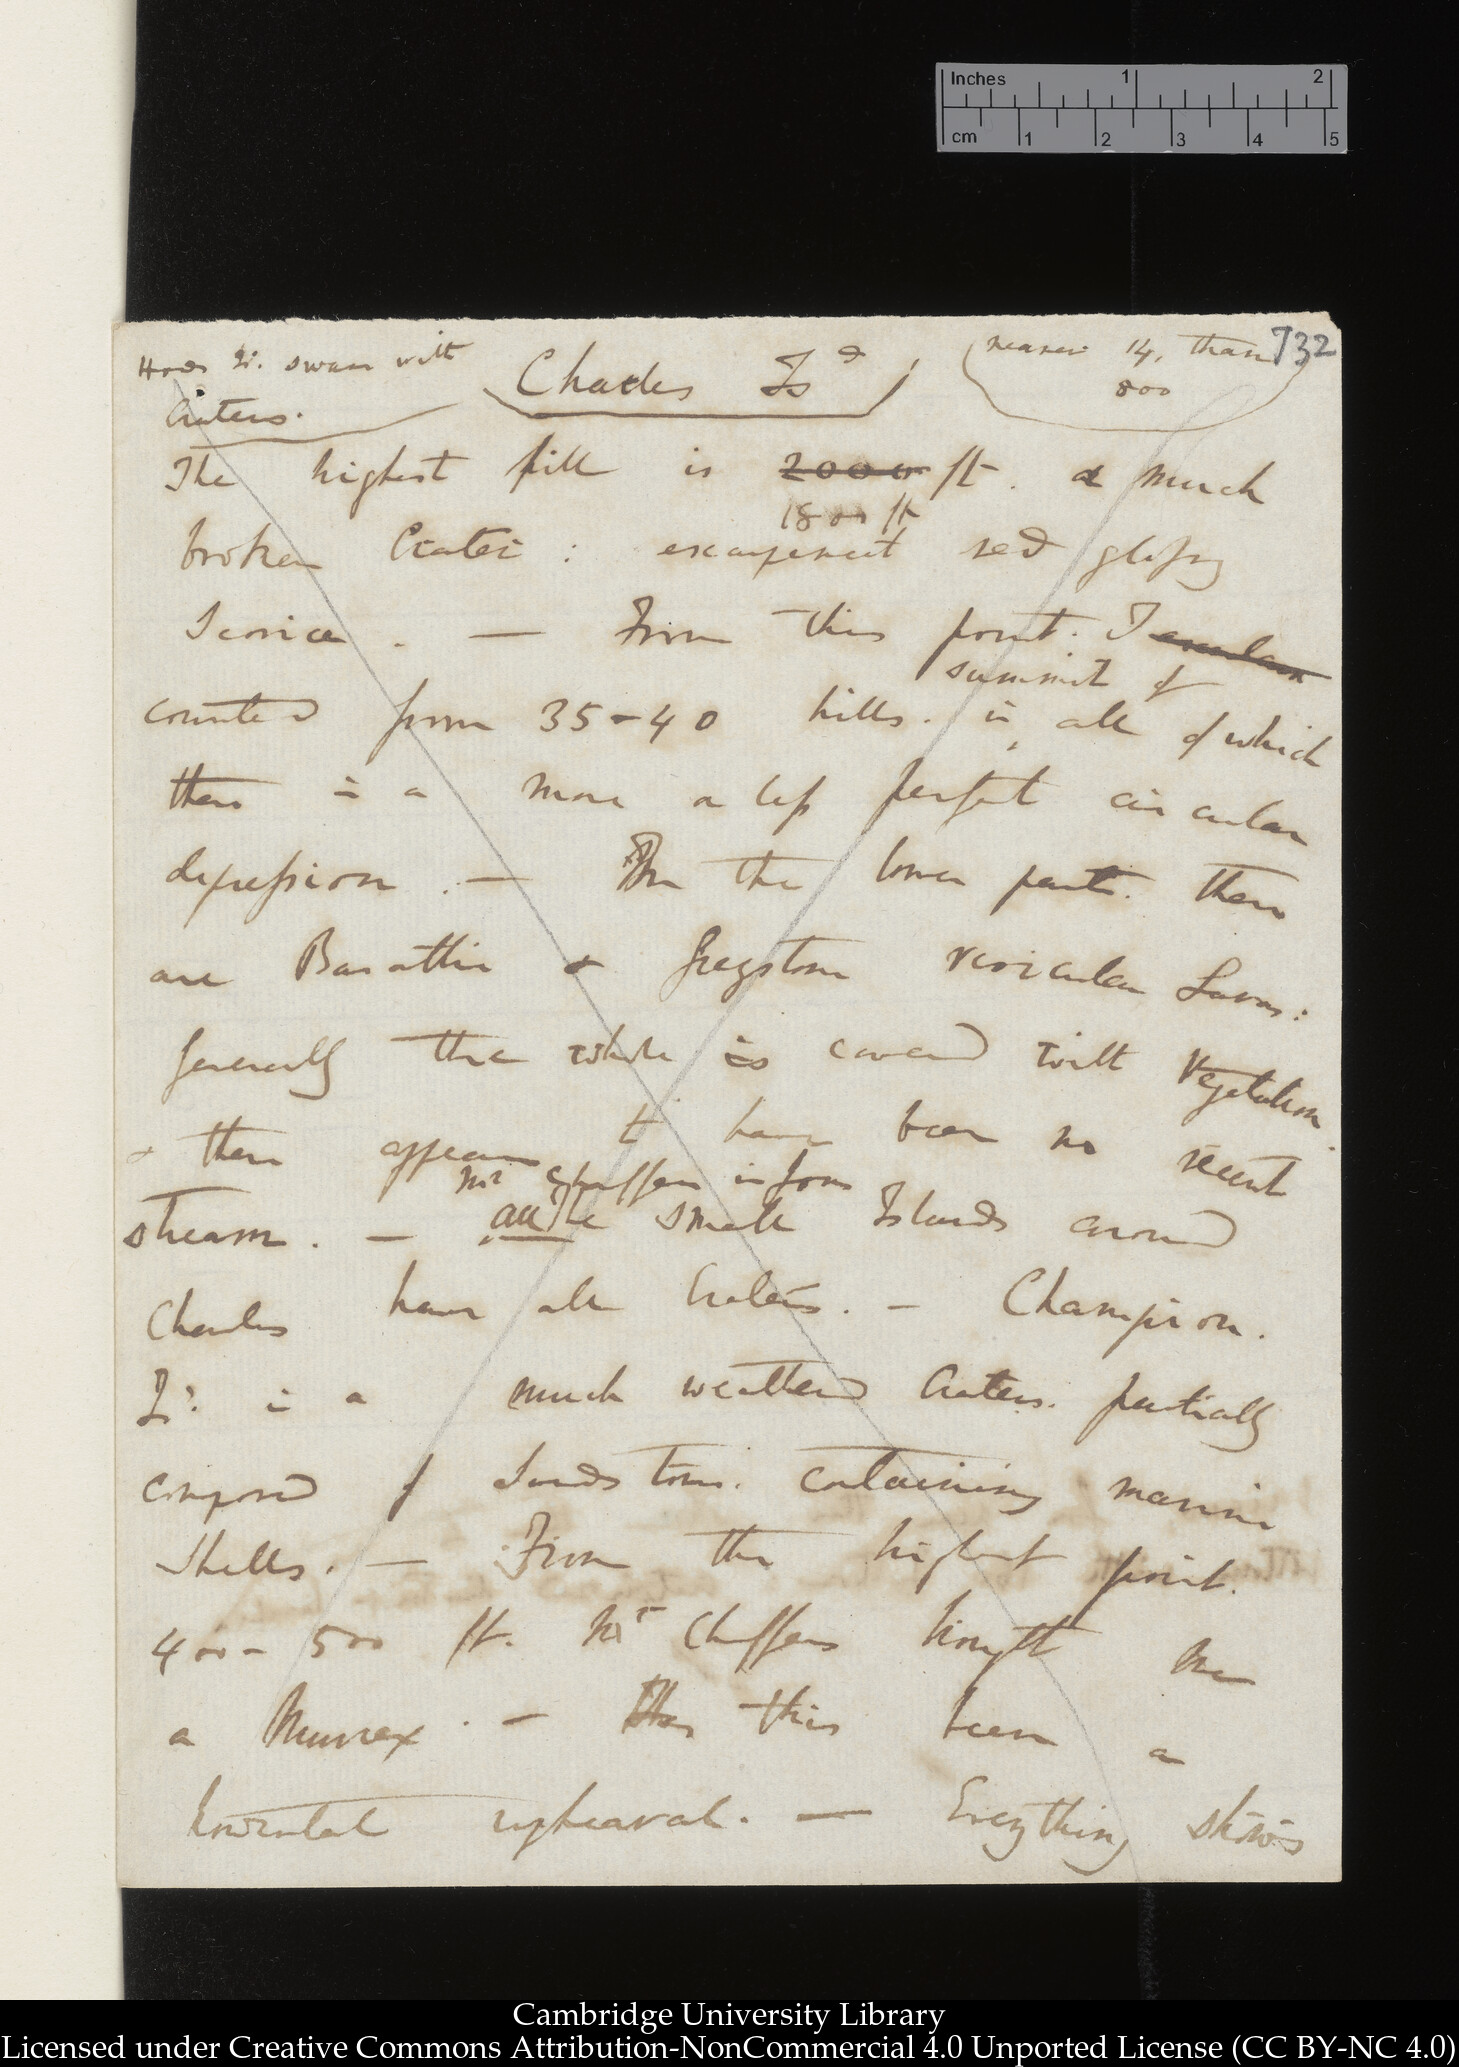 Inches 1 2
cm 1 2 3 4 5
732
Hoods Is. swarm with
Craters.
Charles Isd
nearer 14, than
800
The highest hill is 2000 ft. a much
1800 ft
broken Crater: escarpement red glossy
Scoriae. — From this point. I
summit of
counted from 35-40 hills. in all of which
there is a more or less perfect circular
depression. — In the lower parts. there
are Basaltic & greystone vesicular Lavas:
generally the whole is covered with vegetation.
& there appears to have been no recent
Mr Chaffers informs
stream. — all the small Islands around
Charles have all Craters. — Champion.
Isd. is a much weathered Craters. partially
composed of Sandstone. containing marine
Shells. — From the highest point.
400-500 ft. Mr Chaffers brought me
a Murex. — Has this been a
horizontal upheaval. — Everything shows
Cambridge University Library
Licensed under Creative Commons Attribution-NonCommercial 4.0 Unported License (CC BY-NC 4.0)